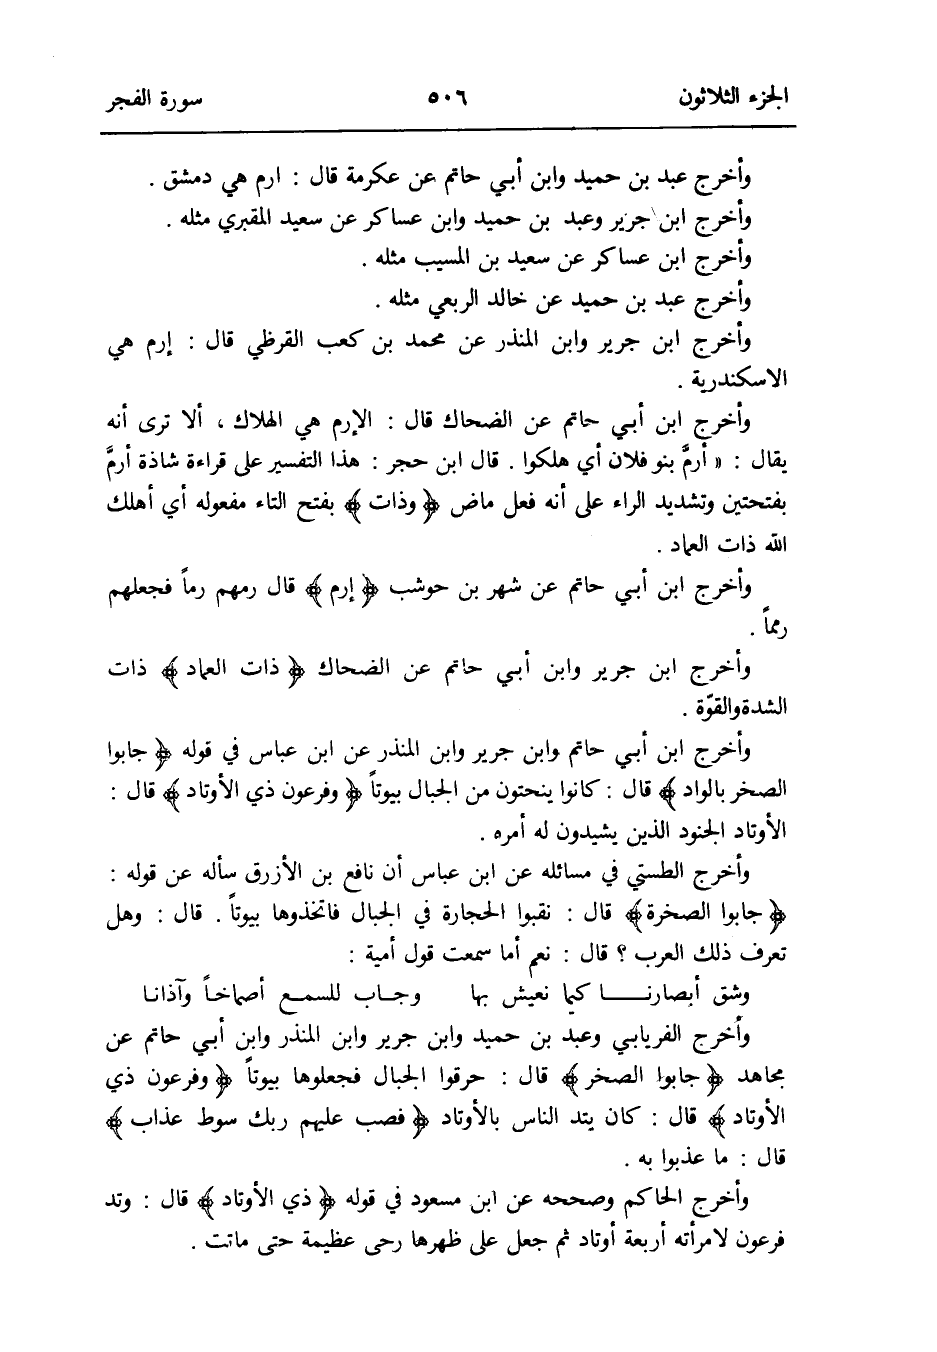 الجزء الثلاثون ٥٠٦ سورة الفجر
وأخرج عبد بن حميد وابن أبي حاتم عن عكرمة قال : ارم هي دمشق .
وأخرج ابن جرير وعبد بن حميد وابن عساكر عن سعيد المقبري مثله .
وأخرج ابن عساكر عن سعيد بن المسيب مثله .
وأخرج عبد بن حميد عن خالد الربعي مثله .
وأخرج ابن جرير وابن المنذر عن محمد بن كعب القرظي قال : إرم هي
الاسكندرية .
وأخرج ابن أبي حاتم عن الضحاك قال : الإرم هي الهلاك ، ألا ترى أنه
يقال : « أرمَّ بنو فلان أي هلكوا . قال ابن حجر : هذا التفسير على قراءة شاذة أرمَّ
بفتحتين وتشديد الراء على أنه فعل ماض ﴿ وذات ﴾ بفتح التاء مفعوله أي أهلك
الله ذات العماد .
وأخرج ابن أبي حاتم عن شهر بن حوشب ﴿ إرم ﴾ قال رمهم رماً فجعلهم
رمماً .
وأخرج ابن جرير وابن أبي حاتم عن الضحاك ﴿ ذات العماد ﴾ ذات
الشدة والقوّة .
وأخرج ابن أبي حاتم وابن جرير وابن المنذر عن ابن عباس في قوله ﴿ جابوا
الصخر بالواد ﴾ قال : كانوا ينحتون من الجبال بيوتاً ﴿ وفرعون ذي الأوتاد ﴾ قال :
الأوتاد الجنود الذين يشيدون له أمره .
وأخرج الطستي في مسائله عن ابن عباس أن نافع بن الأزرق سأله عن قوله :
﴿ جابوا الصخرة ﴾ قال : نقبوا الحجارة في الجبال فاتخذوها بيوتاً . قال : وهل
تعرف ذلك العرب ؟ قال : نعم أما سمعت قول أمية :
وشق أبصارنـــا كيما نعيش بها وجـاب للسمـع أصماخـاً وآذانـا
وأخرج الفريابي وعبد بن حميد وابن جرير وابن المنذر وابن أبي حاتم عن
مجاهد ﴿ جابوا الصخر ﴾ قال : حرقوا الجبال فجعلوها بيوتاً ﴿ وفرعون ذي
الأوتاد ﴾ قال : كان يتد الناس بالأوتاد ﴿ فصب عليهم ربك سوط عذاب ﴾
قال : ما عذبوا به .
وأخرج الحاكم وصححه عن ابن مسعود في قوله ﴿ ذي الأوتاد ﴾ قال : وتد
فرعون لامرأته أربعة أوتاد ثم جعل على ظهرها رحى عظيمة حتى ماتت .